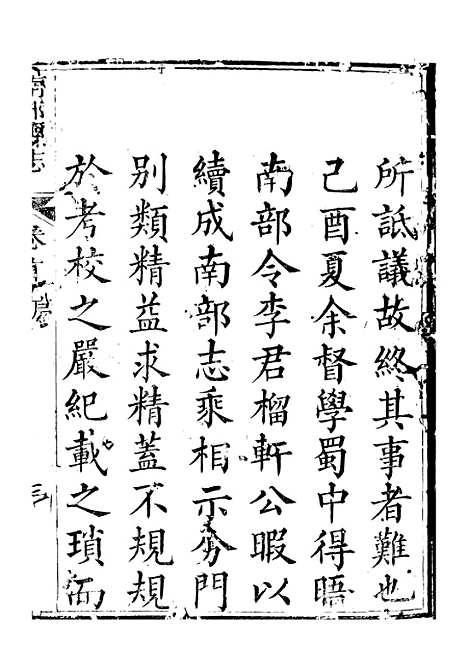 所詆議故終其事者難也
己酉夏余督學蜀中得晤
南部令李君榴軒公暇以
續成南部志乘相示分門
別類精益求精蓋不規規
於考校之嚴紀載之瑣而
南部縣志
卷首
三